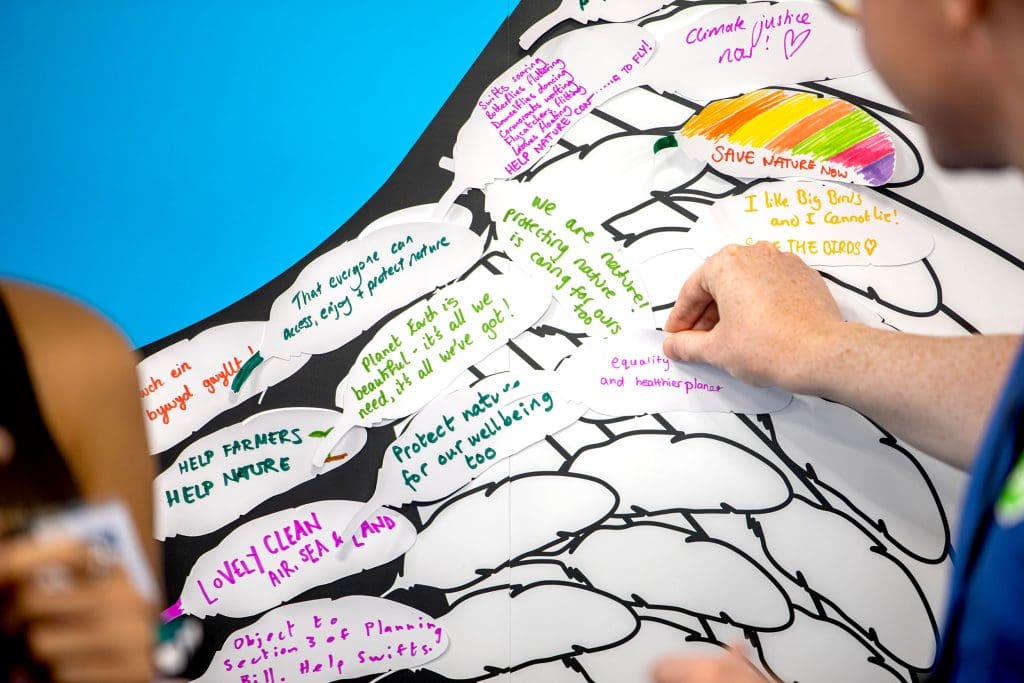 Climate justice
now!
Swifts soaring
Butterflies fluttering
Damselflies dancing
Cormorants wafting
Flycatchers flitting
floating
HELP NATURE CONT.....IN TO FLY!
SAVE NATURE NOW
I like Big Birds
and I Cannot Lie!
THE BIRDS
We are nature!
protecting nature
is caring for ours
too
That everyone can
access, enjoy + protect nature
Planet Earth is
beautiful - it's all we
need, it's all we've got!
equality
and healthier planet
ein
bywyd gwyllt!
Protect nature
for our wellbeing
too
HELP FARMERS
HELP NATURE
LOVELY CLEAN
AIR, SEA & LAND
Object to
Section 3 of Planning
Bill. Help Swifts.